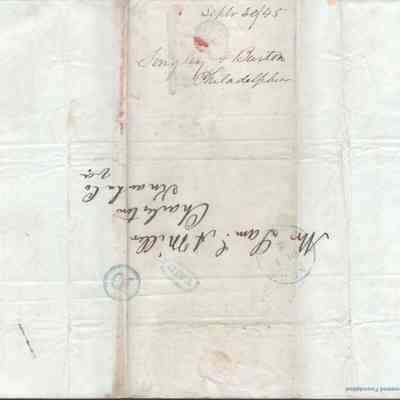 Septr 20/45
Tingley & Burton
Philadelphia
Mr Sam. A Miller
Charleston
Kanawha Co
Va
10